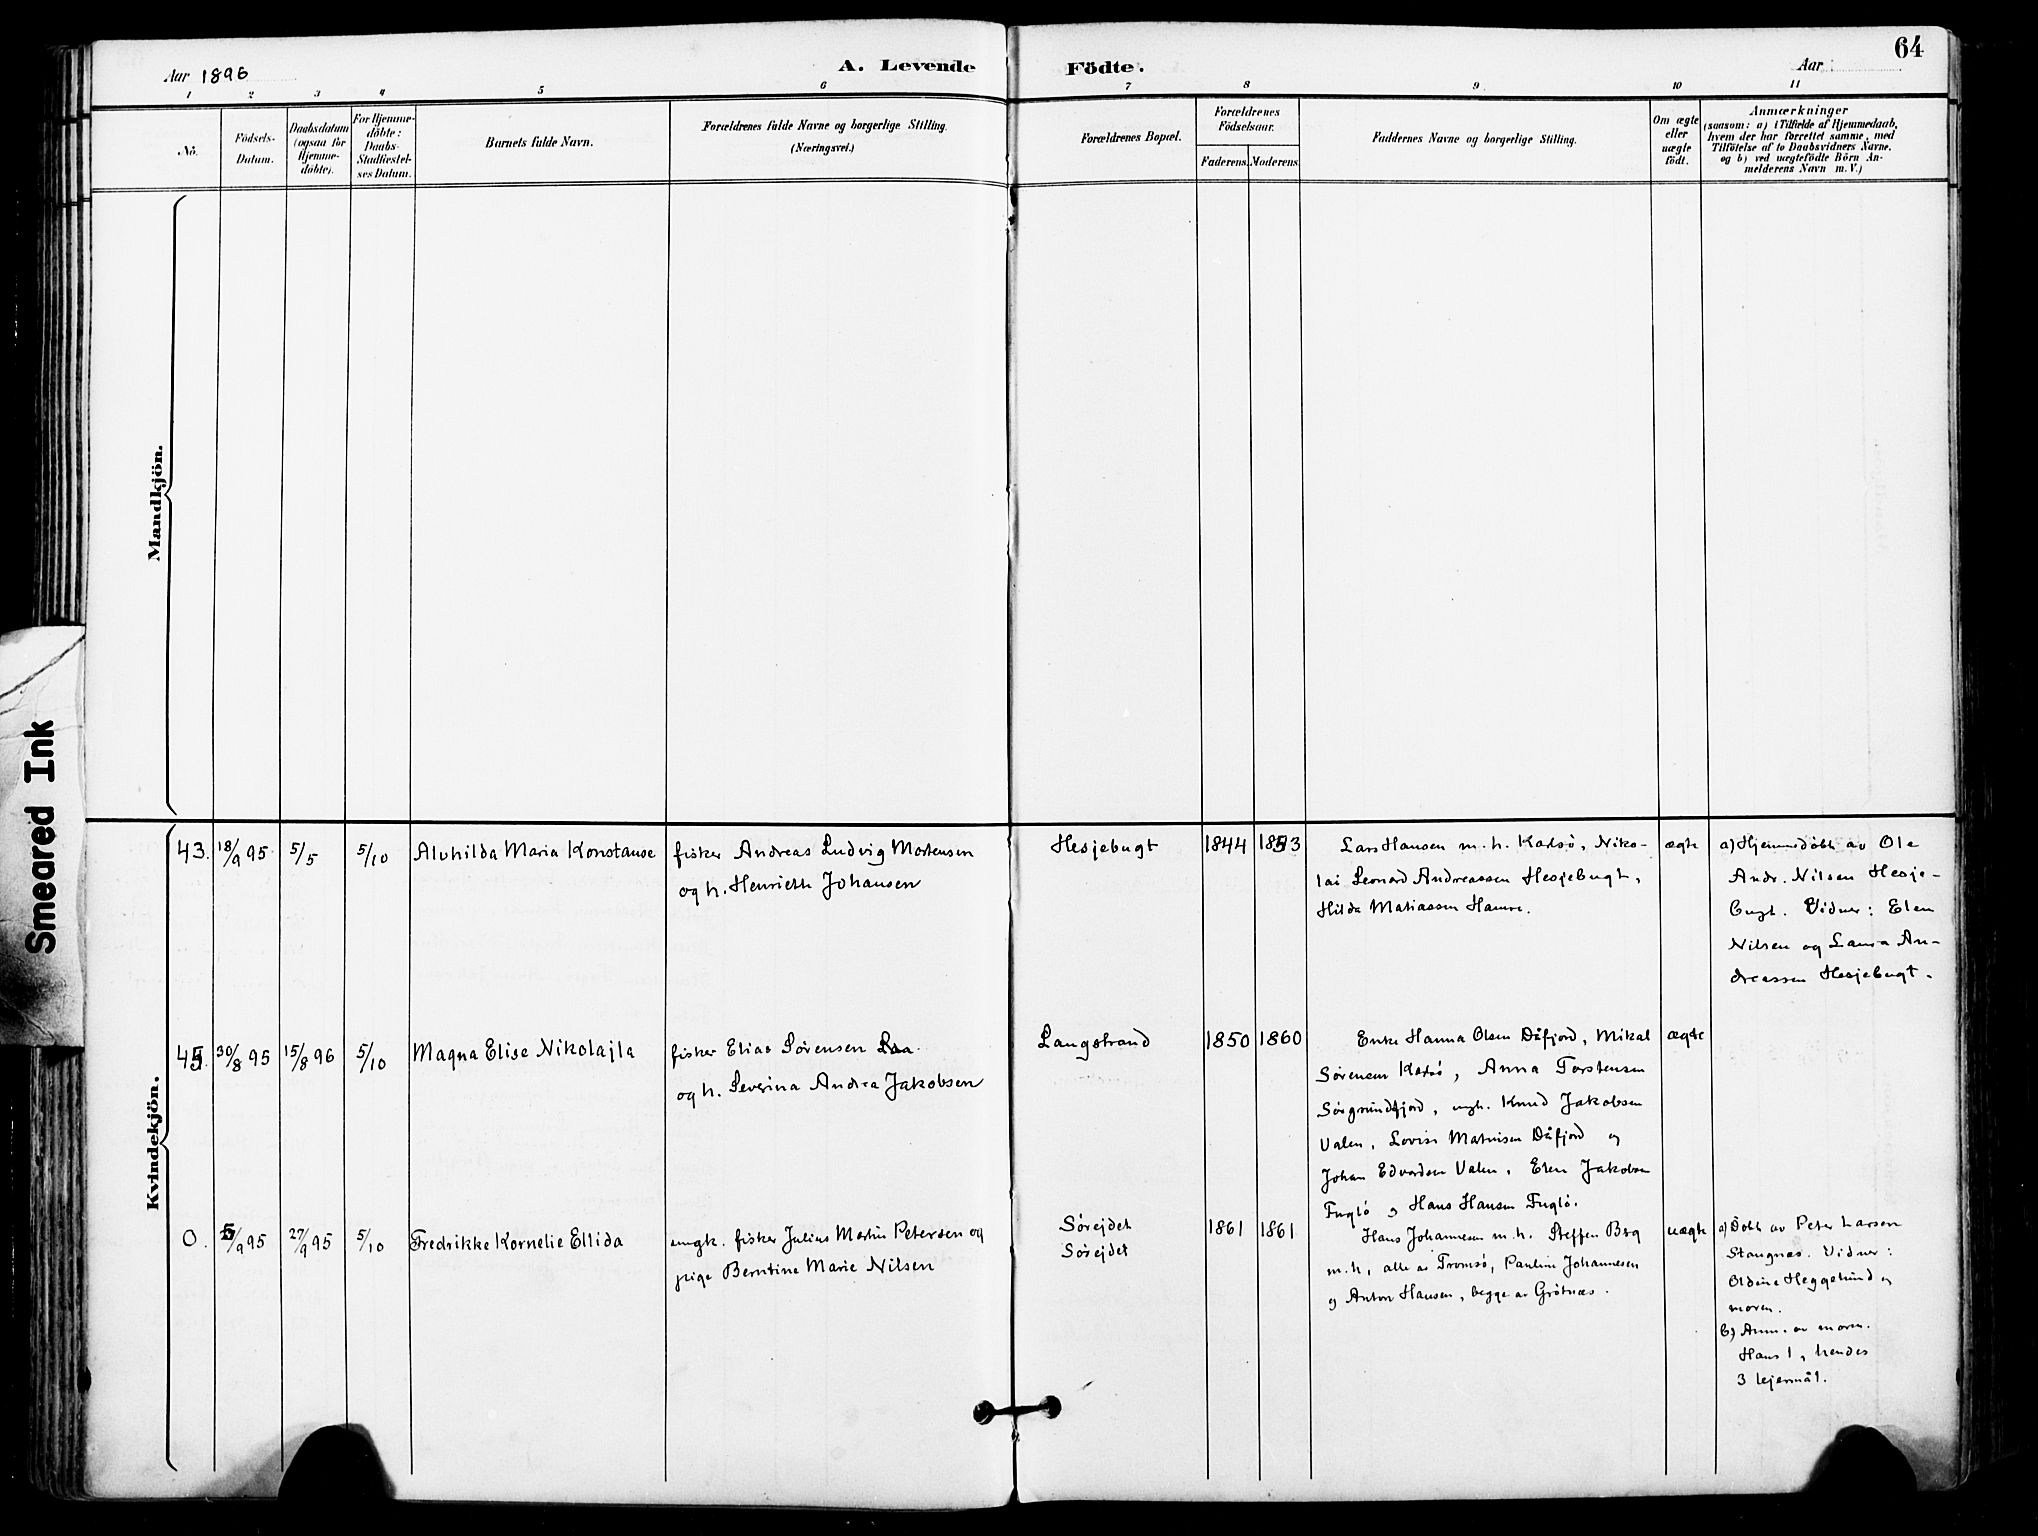 64
Aar 1896
A. Levende Födte.
Aar
1 2 3 4 5 6 7 8 9 10 11
No.
Födsels-
Datum.
Daabsdatum
(ogsaa for
Hjemme-
döbte).
For Hjemme-
döbte:
Daabs-
Stadfæstel-
ses Datum.
Barnets fulde Navn.
Forældrenes fulde Navne og borgerlige Stilling.
(Næringsvei.)
Forældrenes Bopæl.
Forældrenes
Födselsaar.
Faderens. Moderens.
Faddernes Navne og borgerlige Stilling.
Om ægte
eller
uægte
födt.
Anmærkninger
(saasom: a) i Tilfælde af Hjemmedaab,
hvem der har forrettet samme, med
Tilföielse af to Daabsvidners Navne.
og b) ved uægtefödte Börn An-
melderens Navn m. V.)
Mandkjön.
Smeared Ink
Kvindekjön.
43. 18/9 95 5/5 5/10 Alvhilda Maria Konstanse
fisker Andreas Ludvig Mortensen
og h. Henriette Johansen
Hesjebugt
1844 1853
Lars Hansen m. h. Karlsö, Niko-
lai Leonard Andreassen Hesjebugt,
Hilda Matiassen Hamre.
ægte
a) Hjemmedöbt av Ole
Andr. Nilsen Hesje-
bugt. Vidner: Elen
Nilsen og Laura An-
dreassen Hesjebugt.
45. 30/8 95 15/8 96 5/10 Magna Elise Nikolajla
fisker Elias Sørensen
og h. Severina Andrea Jakobsen
Langstrand
1850 1860
Enke Hanna Olsen Dåfjord, Mikal
Sørensen Karlsö, Anna Torstensen
Sørgrundfjord, ungk. Knud Jakobsen
Valen, Lovise Mathisen Dåfjord og
Johan Edvardsen Valen, Elen Jakobsen
Fuglö og Hans Hansen Fuglö.
ægte
0. /9 95 27/9 95 5/10 Fredrikke Kornelie Ellida
ungk. fisker Julius Martin Petersen og
pige Berntine Marie Nilsen
Sørejdet
Sørejdet
1861 1861
Hans Johannesen m. h. Steffen Berg
m. h, alle av Tromsö, Pauline Johannesen
og Anton Hansen, begge av Grötnæs.
uægte
a) Döbt av Peter Larsen
Stangnæs. Vidner:
Oldine Heggelund og
moren.
b) Anm. av moren.
Hans 1, hendes
3 lejermål.